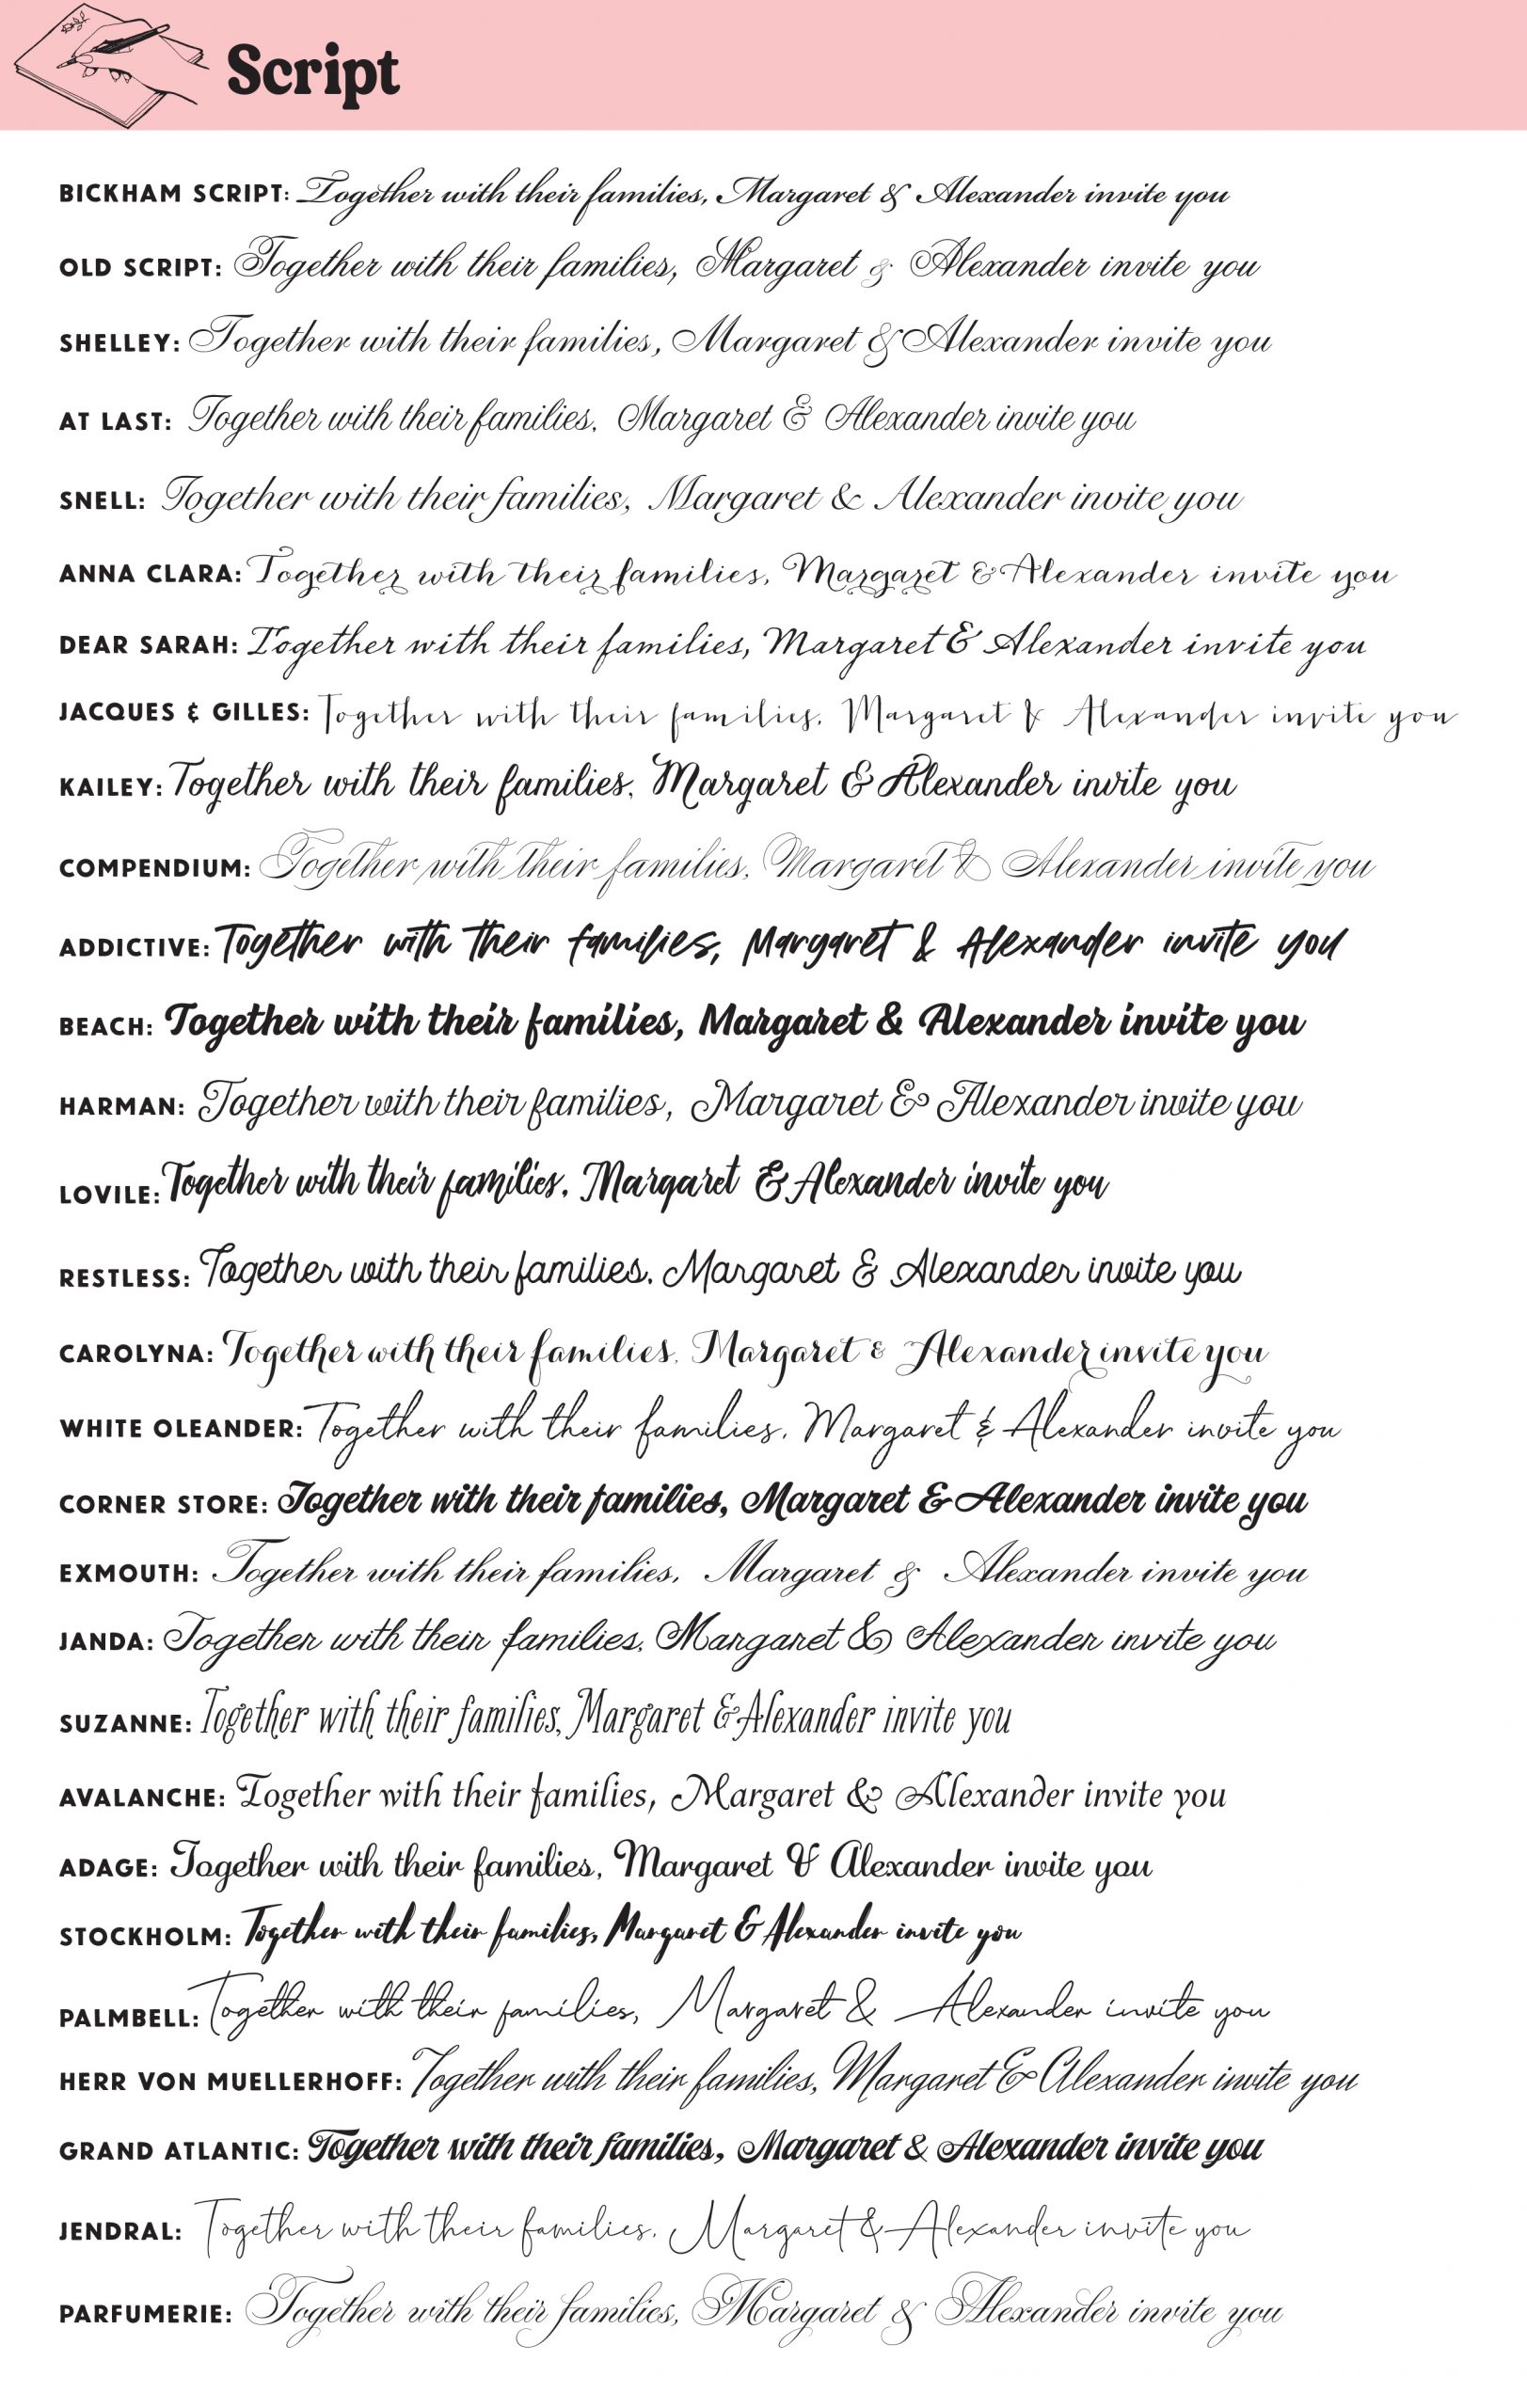 Script
BICKHAM SCRIPT: Together with their families, Margaret & Alexander invite you
OLD SCRIPT: Together with their families, Margaret & Alexander invite you
SHELLEY: Together with their families, Margaret & Alexander invite you
AT LAST: Together with their families, Margaret & Alexander invite you
SNELL: Together with their families, Margaret & Alexander invite you
ANNA CLARA: Together with their families, Margaret & Alexander invite you
DEAR SARAH: Together with their families, Margaret & Alexander invite you
JACQUES & GILLES: Together with their families, Margaret & Alexander invite you
KAILEY: Together with their families, Margaret & Alexander invite you
COMPENDIUM: Together with their families, Margaret & Alexander invite you
ADDICTIVE: Together with their families, Margaret & Alexander invite you
BEACH: Together with their families, Margaret & Alexander invite you
HARMAN: Together with their families, Margaret & Alexander invite you
LOVILE: Together with their families, Margaret & Alexander invite you
RESTLESS: Together with their families, Margaret & Alexander invite you
CAROLYNA: Together with their families, Margaret & Alexander invite you
WHITE OLEANDER: Together with their families, Margaret & Alexander invite you
CORNER STORE: Together with their families, Margaret & Alexander invite you
EXMOUTH: Together with their families, Margaret & Alexander invite you
JANDA: Together with their families, Margaret & Alexander invite you
SUZANNE: Together with their families, Margaret & Alexander invite you
AVALANCHE: Together with their families, Margaret & Alexander invite you
ADAGE: Together with their families, Margaret & Alexander invite you
STOCKHOLM: Together with their families, Margaret & Alexander invite you
PALMBELL: Together with their families, Margaret & Alexander invite you
HERR VON MUELLERHOFF: Together with their families, Margaret & Alexander invite you
GRAND ATLANTIC: Together with their families, Margaret & Alexander invite you
JENDRAL: Together with their families, Margaret & Alexander invite you
PARFUMERIE: Together with their families, Margaret & Alexander invite you